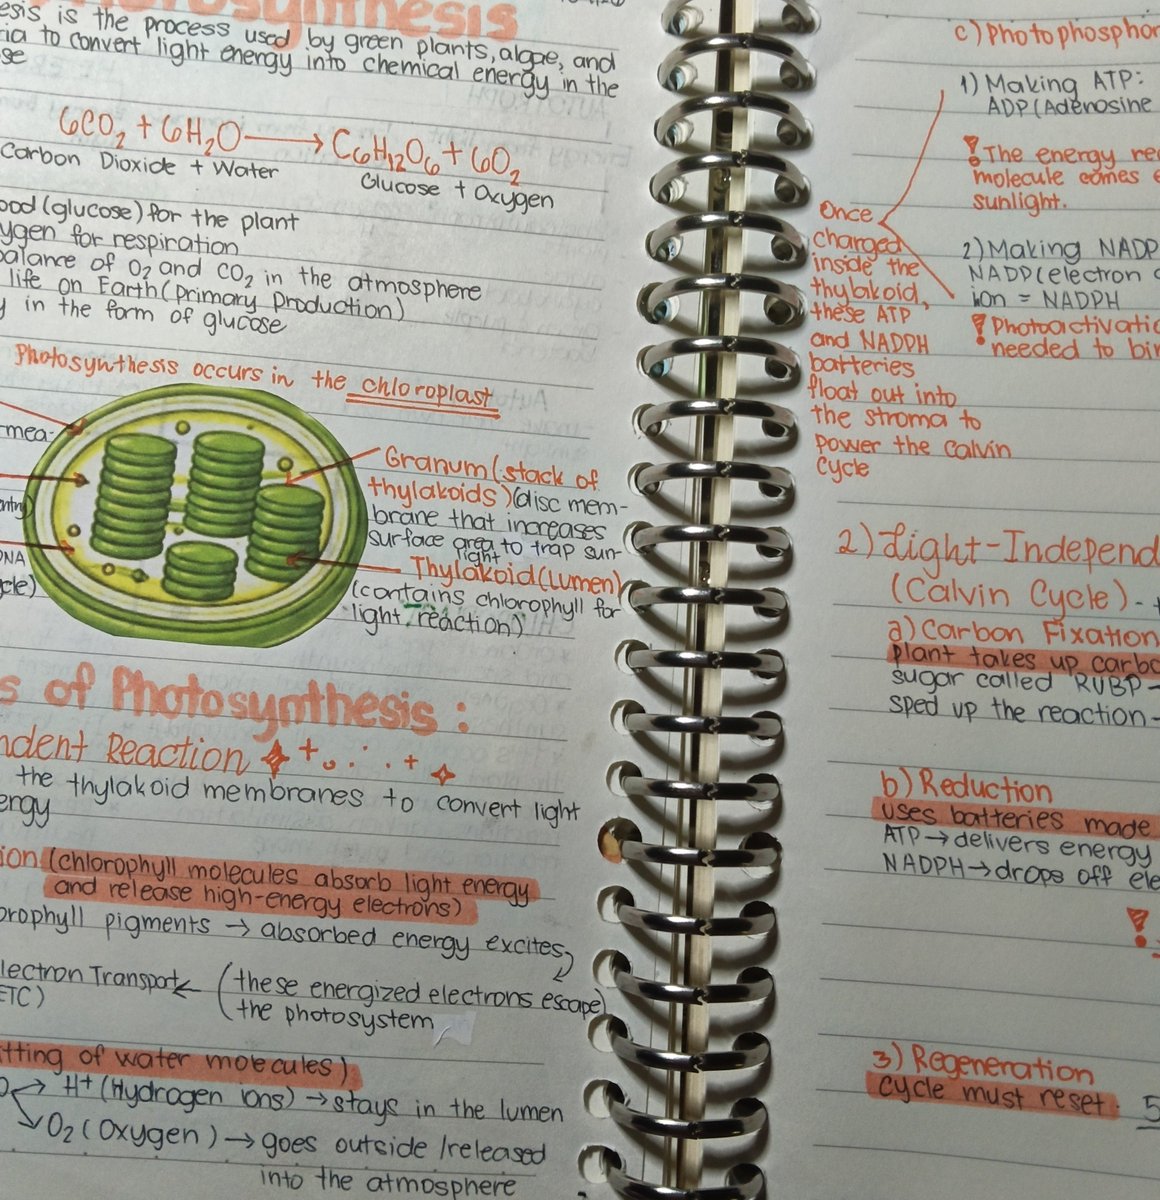 esis, is the process used by green plants, algae, and
ria to convert light energy into chemical energy in the
se
6CO2 + 6H2O → C6H12O6 + 6O2
Carbon Dioxide + Water
Glucose + Oxygen
ood (glucose) for the plant
ygen for respiration
balance of O2 and CO2 in the atmosphere
life on Earth (Primary Production)
y in the form of glucose
Photosynthesis occurs in the chloroplast
-mea-
DNA
cle)
Granum (stack of
thylakoids) (disc mem-
brane that increases
surface area to trap sun-
light
Thylakoid (Lumen)
(contains chlorophyll for
light reaction)
s of Photosynthesis:
ndent Reaction
the thylakoid membranes to convert light
ergy
ion (chlorophyll molecules absorb light energy
and release high-energy electrons)
orophyll pigments → absorbed energy excites
lectron Transport ← (these energized electrons escape)
ETC)
(the photosystem
itting of water molecules)
→ H+ (Hydrogen ions) → stays in the lumen
O2 (Oxygen) → goes outside / released
into the atmosphere
c) Photophosphor
1) Making ATP:
ADP (Adenosine
! The energy re
molecule comes
sunlight.
2) Making NADP
NADP (electron
ion = NADPH
! Photoactivatio
needed to bin
Once
charged
inside the
thylakoid,
these ATP
and NADPH
batteries
float out into
the stroma to
power the calvin
cycle
2) Light-Independ
(Calvin Cycle) -
a) Carbon Fixation
plant takes up carbo
sugar called RUBP -
sped up the reaction -
b) Reduction
uses batteries made
ATP → delivers energy
NADPH → drops off ele
!
3) Regeneration
cycle must reset. 5